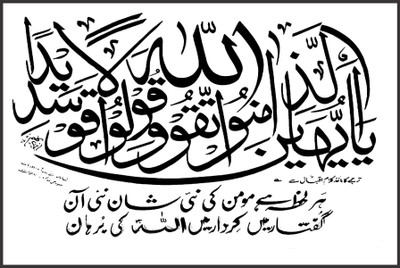 يَا أَيُّهَا الَّذِينَ آمَنُوا اتَّقُوا اللّٰهَ وَقُولُوا قَوْلًا سَدِيدًا
ترجمے کا ماخذ کلامِ اقبال سے ہے
ہر لحظہ ہے مومن کی نئی شان نئی آن
گفتار میں کردار میں اللہ کی بُرہان